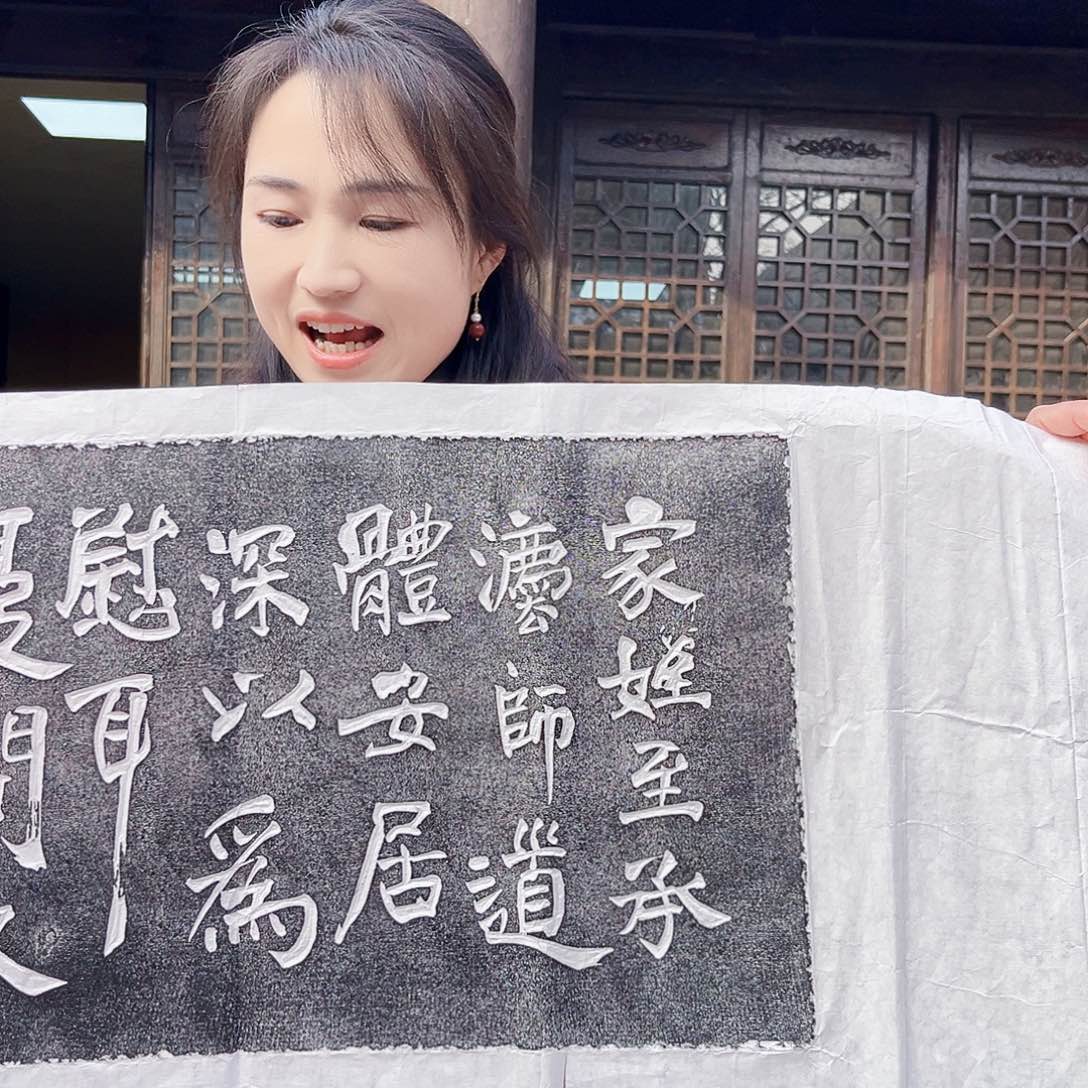 家至承
灋師道
體安居
深以爲
慰耳